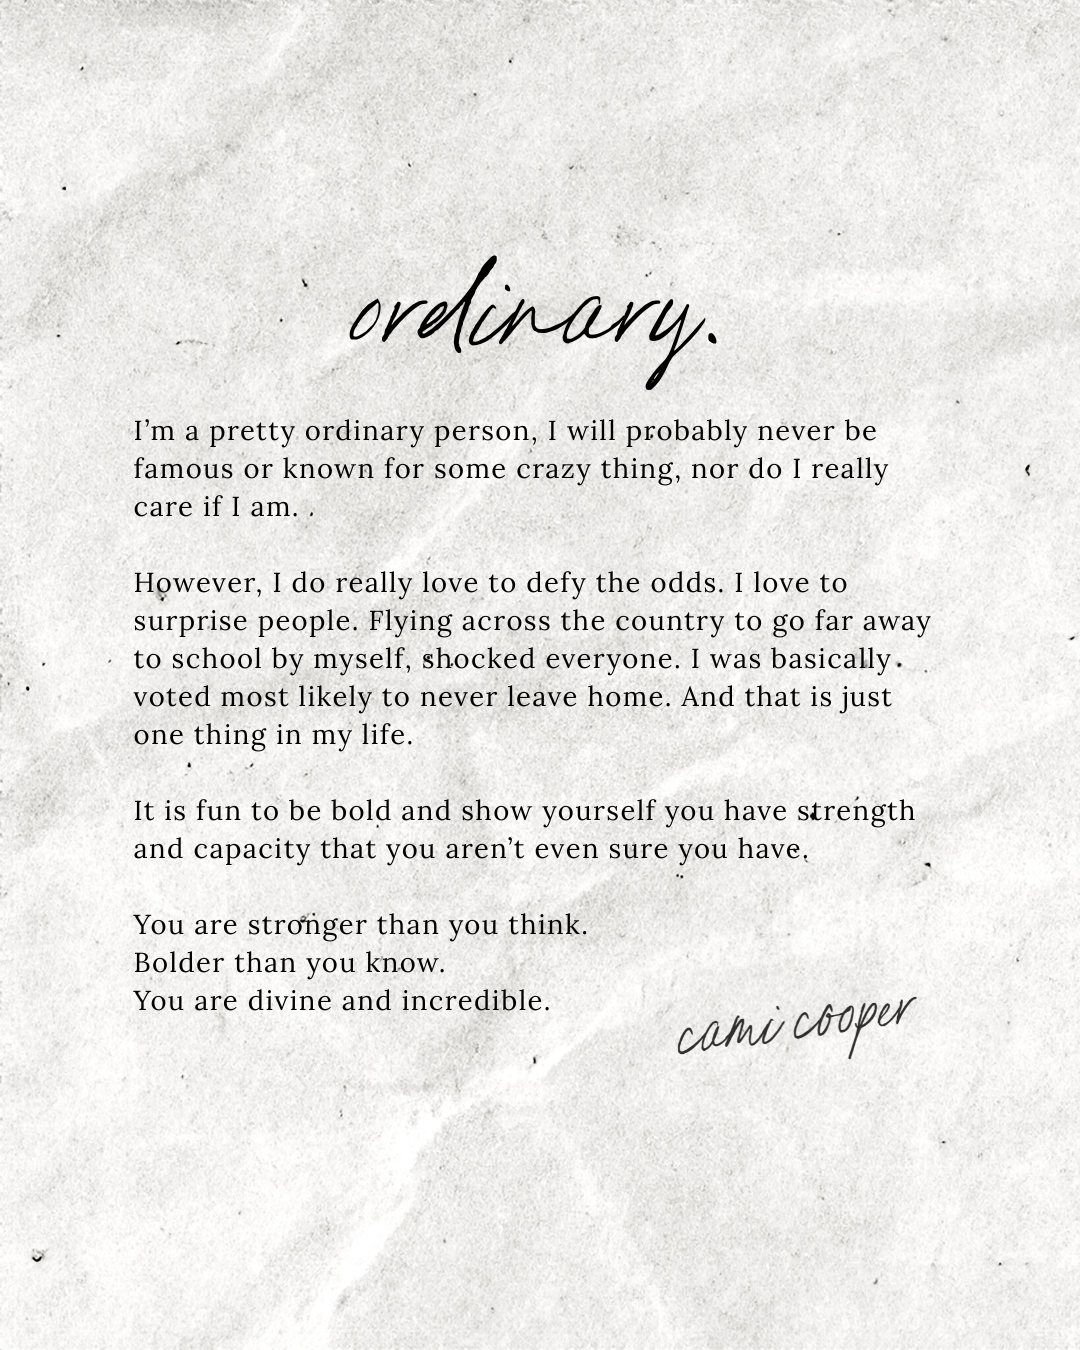 ordinary.
I’m a pretty ordinary person, I will probably never be
famous or known for some crazy thing, nor do I really
care if I am.
However, I do really love to defy the odds. I love to
surprise people. Flying across the country to go far away
to school by myself, shocked everyone. I was basically
voted most likely to never leave home. And that is just
one thing in my life.
It is fun to be bold and show yourself you have strength
and capacity that you aren’t even sure you have.
You are stronger than you think.
Bolder than you know.
You are divine and incredible.
cami cooper